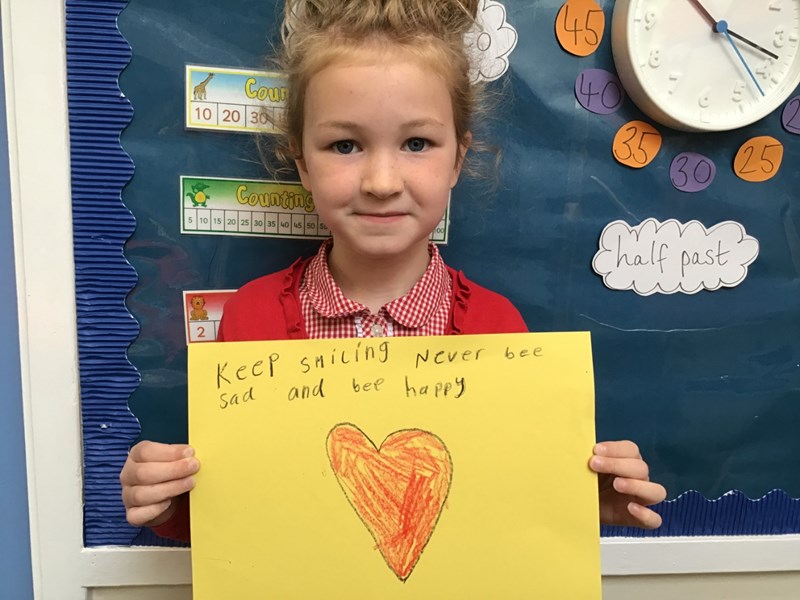 45
40
35
30
25
2
Coun
10 20 30
Counting
5 10 15 20 25 30 35 40 45 50
half past
2
Keep smiling Never bee
sad and bee happy